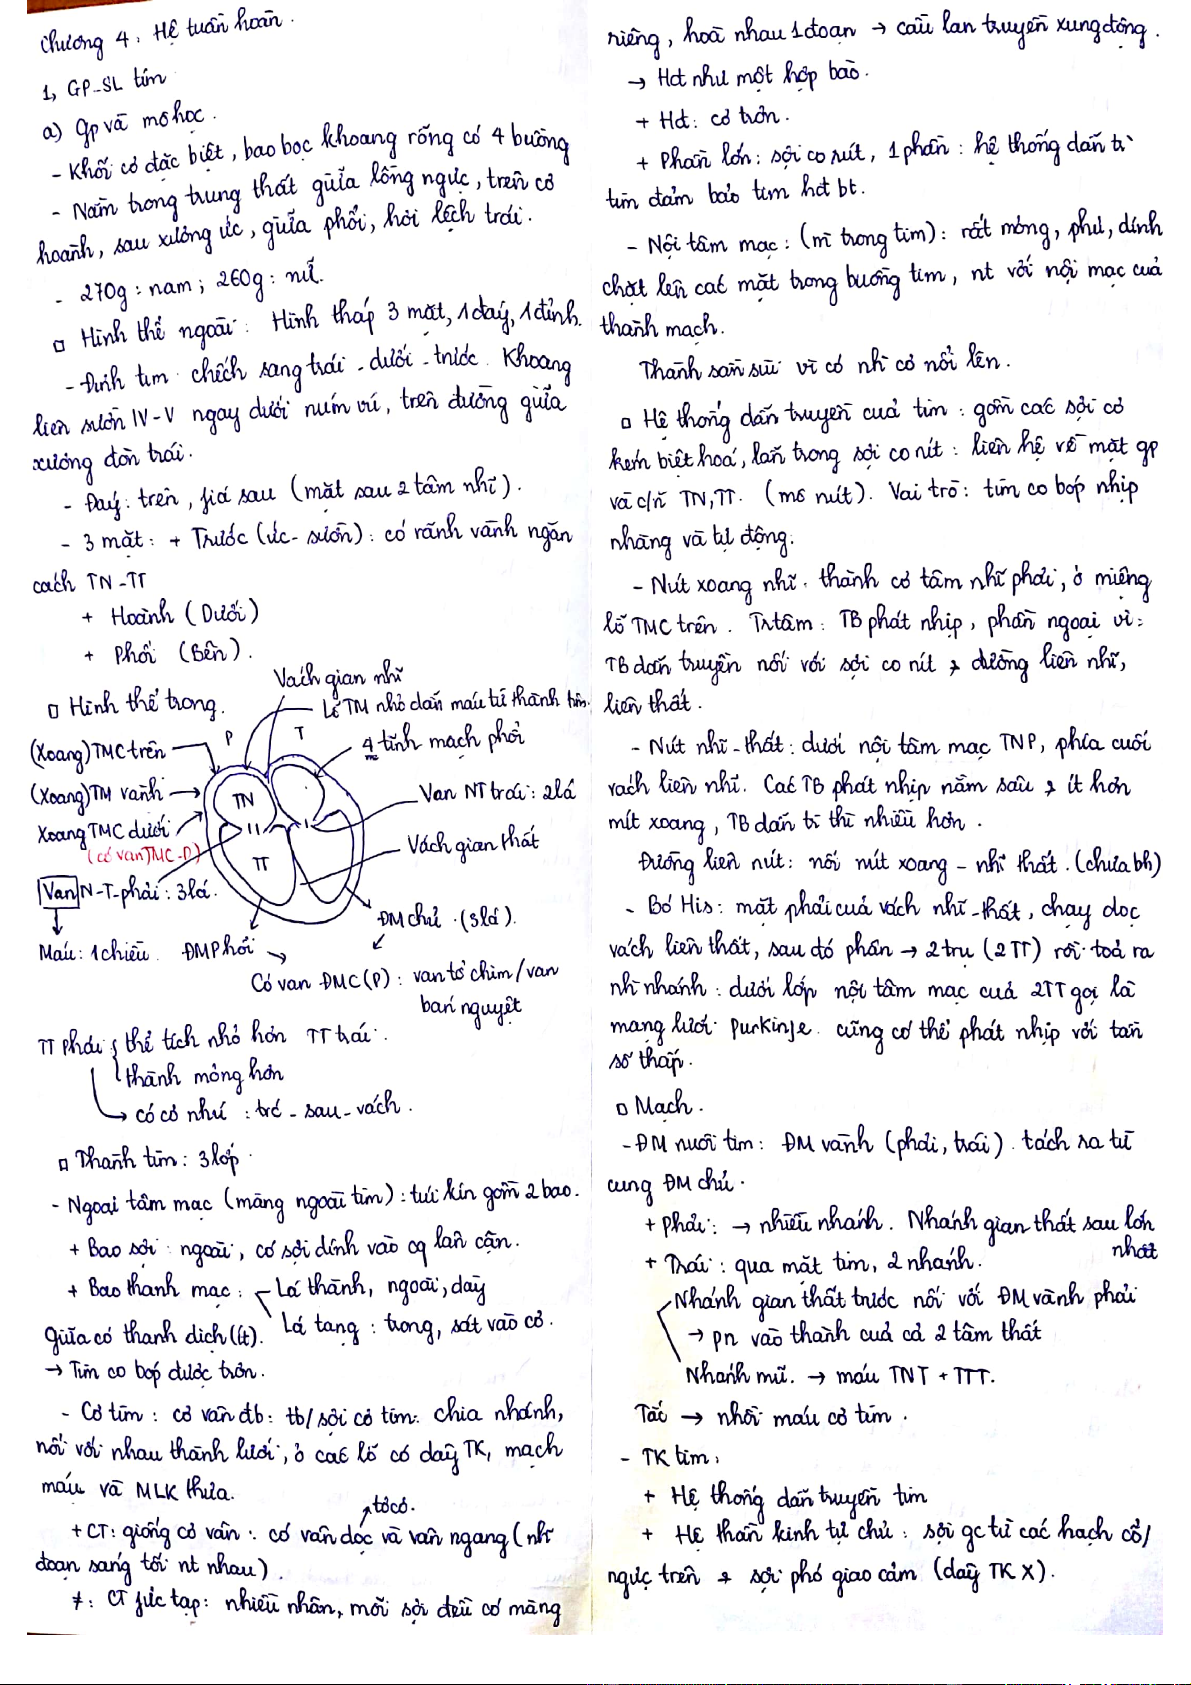 Chương 4: Hệ tuần hoàn.
1, GP-SL tim
a) Gp và mô học.
- Khối cơ đặc biệt, bao bọc khoang rỗng có 4 buồng
- Nằm trong trung thất giữa lồng ngực, trên cơ
hoành, sau xương ức, giữa phổi, hơi lệch trái.
- 270g: nam; 260g: nữ.
□ Hình thể ngoài: Hình tháp 3 mặt, 1 đáy, 1 đỉnh.
- Đỉnh tim chếch sang trái - dưới - trước. Khoang
liên sườn IV-V ngay dưới núm vú, trên đường giữa
xương đòn trái.
- Đáy: trên, fiá sau (mặt sau 2 tâm nhĩ).
- 3 mặt: + Trước (ức - sườn): có rãnh vành ngăn
cách TN-TT
+ Hoành (Dưới)
+ Phổi (Bên).
□ Hình thể trong.
Vách gian nhĩ
Lỗ TM nhỏ dẫn máu từ thành tim.
P
T
(Xoang) TMC trên
4 tĩnh mạch phổi
(Xoang) TM vành
TN
Van NT trái: 2 lá
Xoang TMC dưới
(có van TMC-D)
TT
Vách gian thất
Van N-T-phải: 3 lá.
ĐM chủ (3 lá).
Máu: 1 chiều.
ĐM Phổi
Có van ĐMC (P): van tổ chim/van
bán nguyệt
TT phải { thể tích nhỏ hơn TT trái.
thành mỏng hơn
→ có cơ nhú: trc - sau - vách.
□ Thành tim: 3 lớp.
- Ngoại tâm mạc (màng ngoài tim): túi kín gồm 2 bao.
+ Bao sợi: ngoài, có sợi dính vào cq lân cận.
+ Bao thanh mạc: Lá thành, ngoài, dày
Giữa có thanh dịch (ít). Lá tạng: trong, sát vào cơ.
→ Tim co bóp được trơn.
- Cơ tim: cơ vân đb: tb/sợi cơ tim: chia nhánh,
nối với nhau thành lưới, ở các lỗ có dây TK, mạch
máu và MLK thưa.
tơ cơ.
+ CT: giống cơ vân: có vân dọc và vân ngang (nh
đoạn sáng tối nt nhau).
≠: CT fức tạp: nhiều nhân, mỗi sợi đều có màng
riêng, hoà nhau 1 đoạn → cầu lan truyền xung động.
→ Hđ như một hợp bào.
+ Hđ: cơ trơn.
+ Phần lớn: sợi co rút, 1 phần: hệ thống dẫn tr
tim đảm bảo tim hđ bt.
- Nội tâm mạc: (m trong tim): rất mỏng, phủ, dính
chặt lên các mặt trong buồng tim, nt với nội mạc của
thành mạch.
Thành sần sùi vì có nh cơ nổi lên.
□ Hệ thống dẫn truyền của tim: gồm các sợi cơ
kém biệt hoá, lẫn trong sợi co rút: liên hệ về mặt gp
và c/n TN, TT. (mô nút). Vai trò: tim co bóp nhịp
nhàng và tự động.
- Nút xoang nhĩ: thành cơ tâm nhĩ phải, ở miệng
lỗ TMC trên. Tr tâm: TB phát nhịp, phần ngoại vi:
TB dẫn truyền nối với sợi co rút & đường liên nhĩ,
liên thất.
- Nút nhĩ-thất: dưới nội tâm mạc TNP, phía cuối
vách liên nhĩ. Các TB phát nhịp nằm sâu & ít hơn
nút xoang, TB dẫn tr thì nhiều hơn.
Đường liên nút: nối nút xoang - nhĩ thất. (chưa bh)
- Bó His: mặt phải của vách nhĩ-thất, chạy dọc
vách liên thất, sau đó phân → 2 trụ (2 TT) rồi toả ra
nh nhánh: dưới lớp nội tâm mạc của 2TT gọi là
mạng lưới Purkinje. cũng có thể phát nhịp với tần
số thấp.
□ Mạch.
- ĐM nuôi tim: ĐM vành (phải, trái). tách ra từ
cung ĐM chủ.
+ Phải: → nhiều nhánh. Nhánh gian thất sau lớn
nhất
+ Trái: qua mặt tim, 2 nhánh.
Nhánh gian thất trước nối với ĐM vành phải
→ pn vào thành của cả 2 tâm thất
Nhánh mũ. → máu TNT + TTT.
Tắc → nhồi máu cơ tim.
- TK tim:
+ Hệ thống dẫn truyền tim
+ Hệ thần kinh tự chủ: sợi gc từ các hạch cổ/
ngực trên & sợi phó giao cảm (dây TK X).